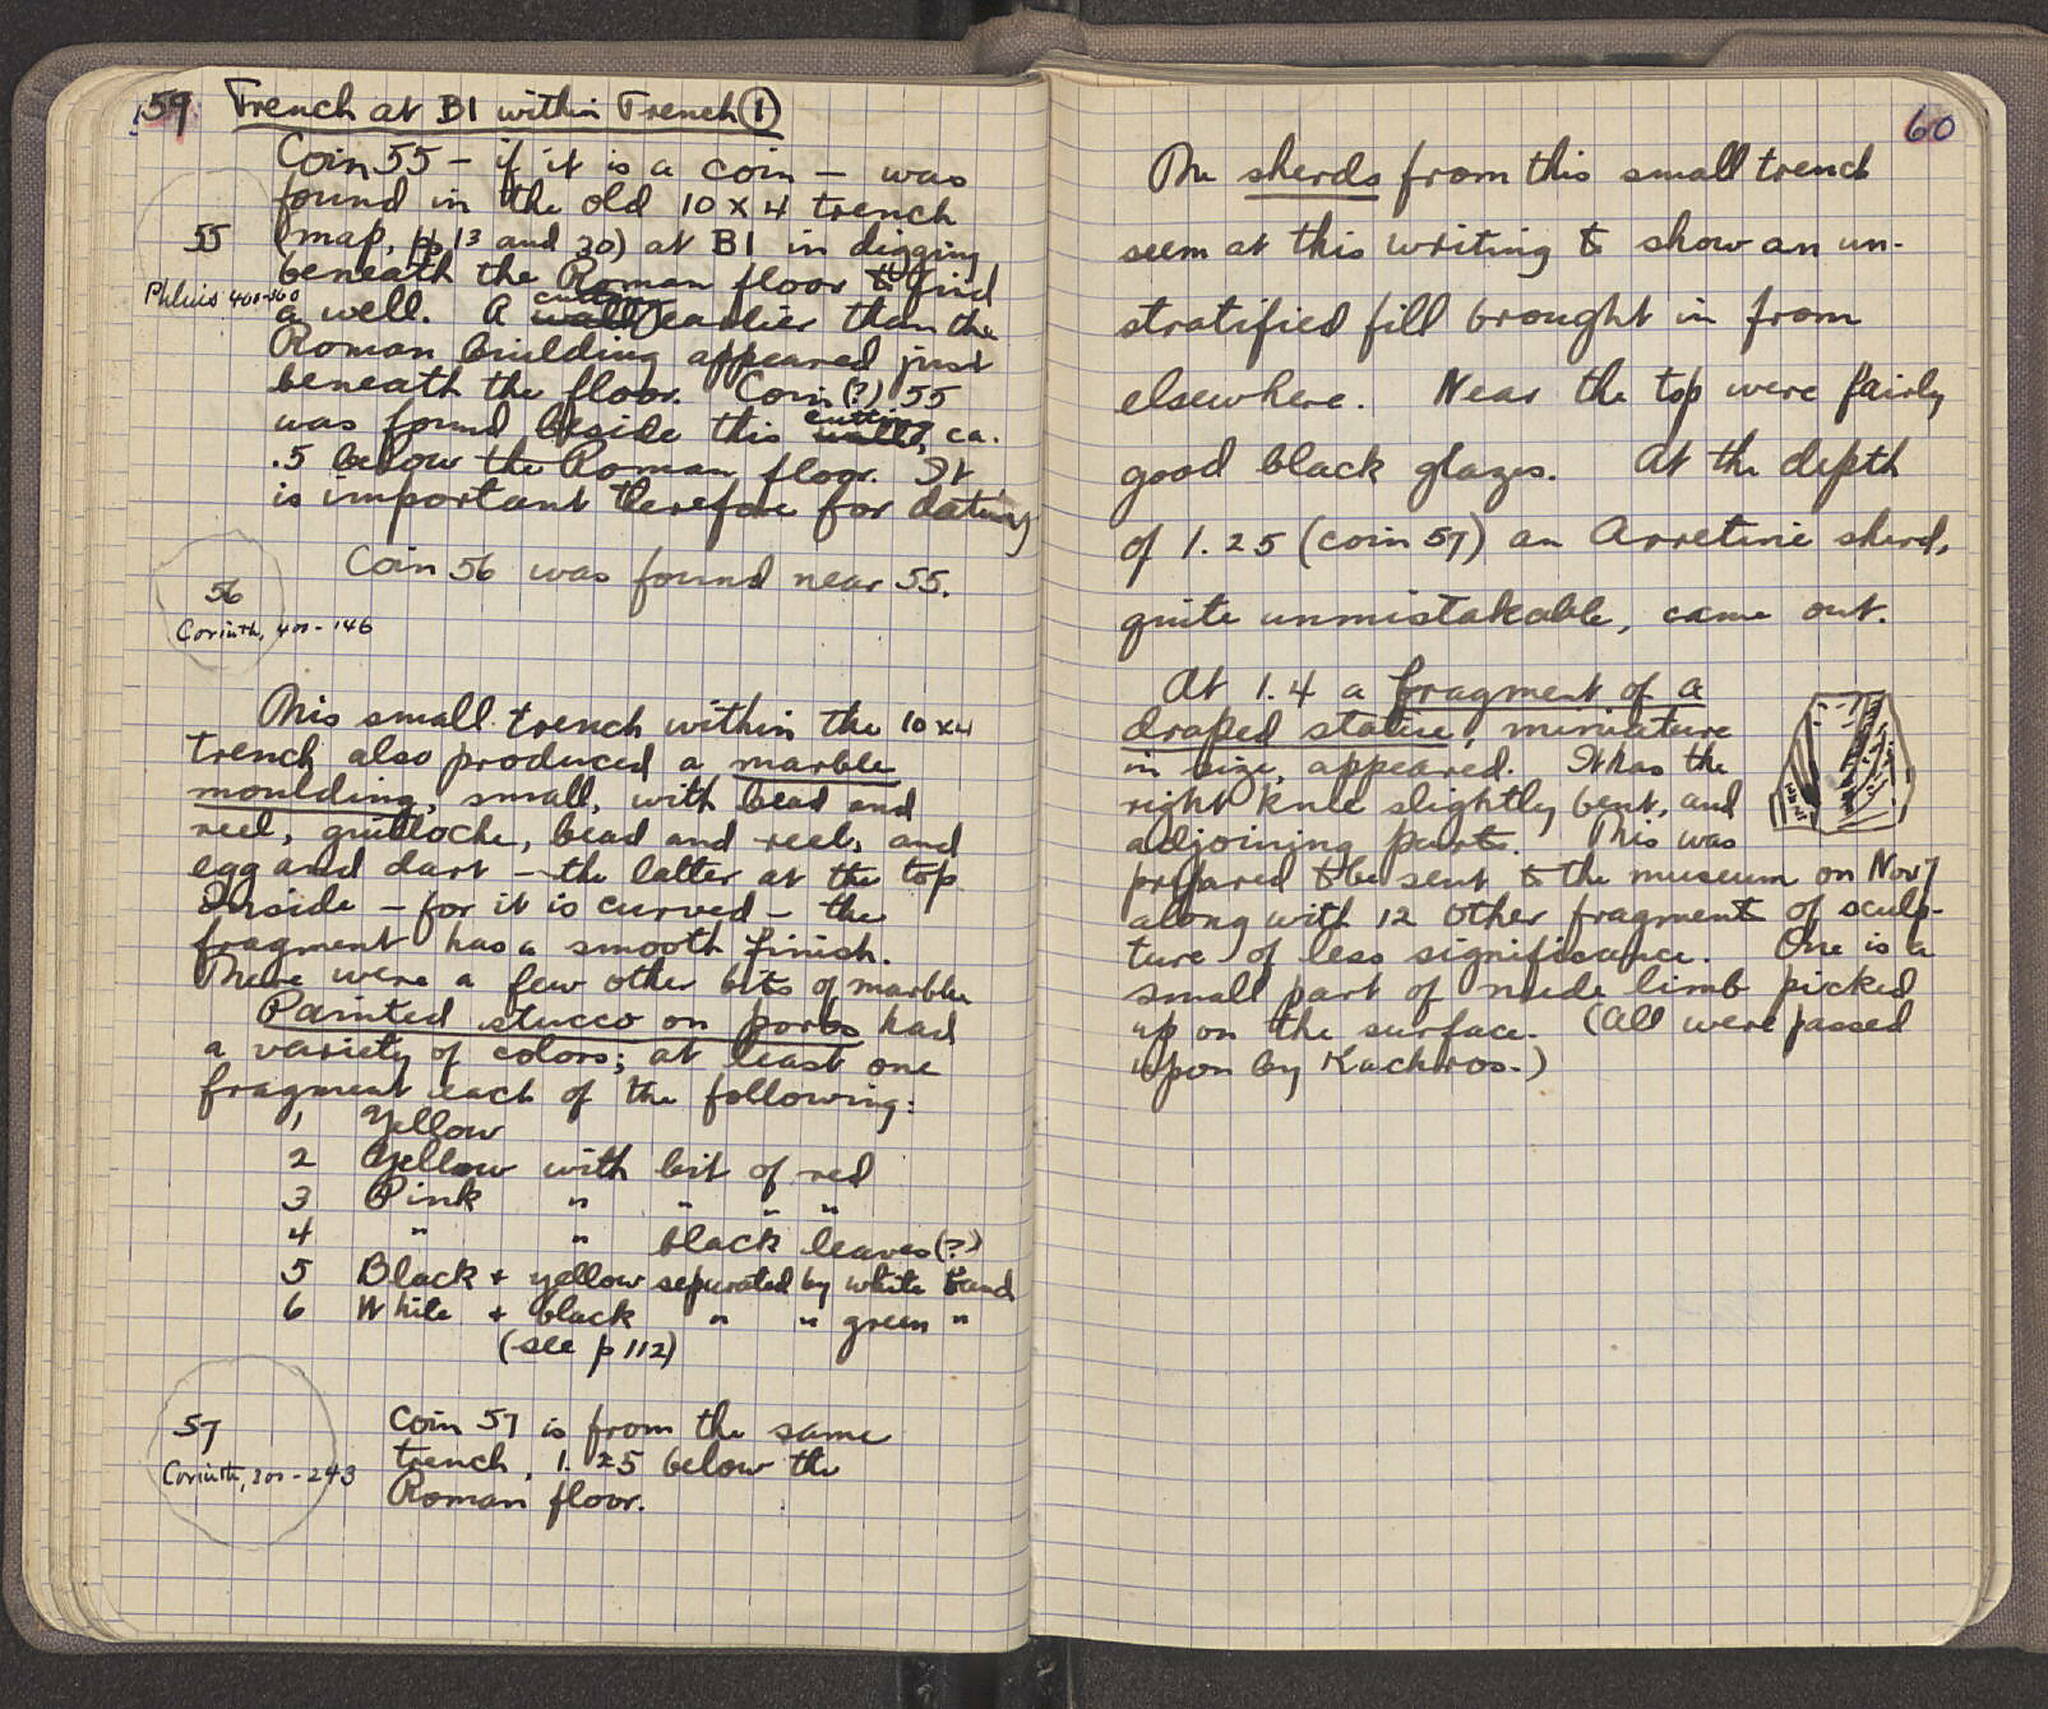 59 Trench at B1 within Trench ①
Coin 55 – if it is a coin – was
found in the old 10 x 4 trench
55 (map, pp 13 and 30) at B1 in digging
beneath the Roman floor to find
Phlius 400-360
a well. A wall cutting earlier than the
Roman building appeared just
beneath the floor. Coin (?) 55
was found beside this wall, cutting ca.
.5 below the Roman floor. It
is important therefore for dating
Coin 56 was found near 55.
56
Corinth, 400-146
This small trench within the 10 x 4
trench also produced a marble
moulding, small, with bead and
reel, guilloche, bead and reel, and
egg and dart – the latter at the top
Inside – for it is curved – the
fragment has a smooth finish.
There were a few other bits of marble
Painted stucco on poros had
a variety of colors; at least one
fragment each of the following:
1 Yellow
2 Yellow with bit of red
3 Pink " " " "
4 " " black leaves (?)
5 Black + yellow separated by white band
6 White + black " " green "
(see p 112)
57 Coin 57 is from the same
trench, 1.25 below the
Corinth, 300-243
Roman floor.
60
The sherds from this small trench
seem at this writing to show an un-
stratified fill brought in from
elsewhere. Near the top were fairly
good black glazes. At the depth
of 1.25 (coin 57) an Arretine sherd,
quite unmistakable, came out.
At 1.4 a fragment of a
draped statue, miniature
in size, appeared. It has the
right knee slightly bent, and
adjoining parts. This was
prepared to be sent to the museum on Nov 7
along with 12 other fragments of sculp-
ture of less significance. One is a
small part of nude limb picked
up on the surface. (All were passed
upon by Kachros.)